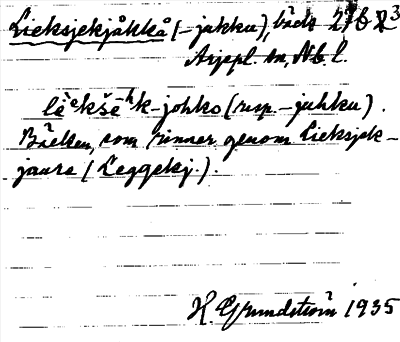 Lieksjekjåkkå (-jakku), bäck 27 b 2 3
Arjepl. sn, Nb. l.
lēekšēhk-johko (resp. -juhku).
Bäcken, som rinner genom Lieksjek-
jaure (Leggekj.).
H. Grundström 1935